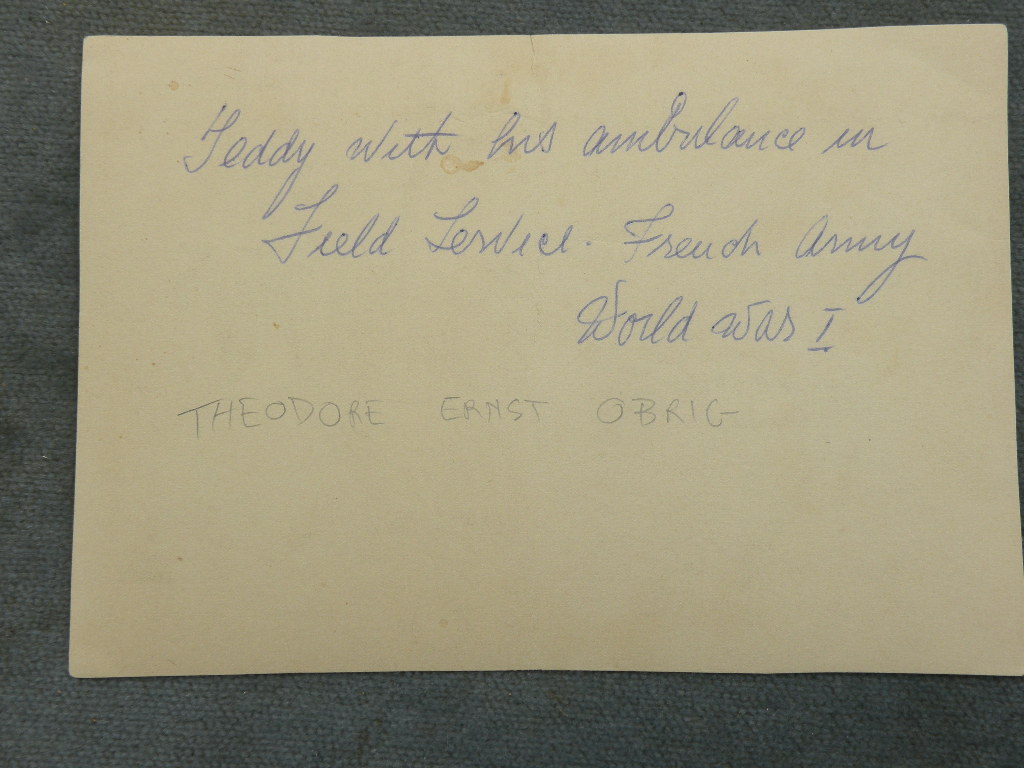 Teddy with his ambulance in
Field Service. French Army
World War I
THEODORE ERNST OBRIG